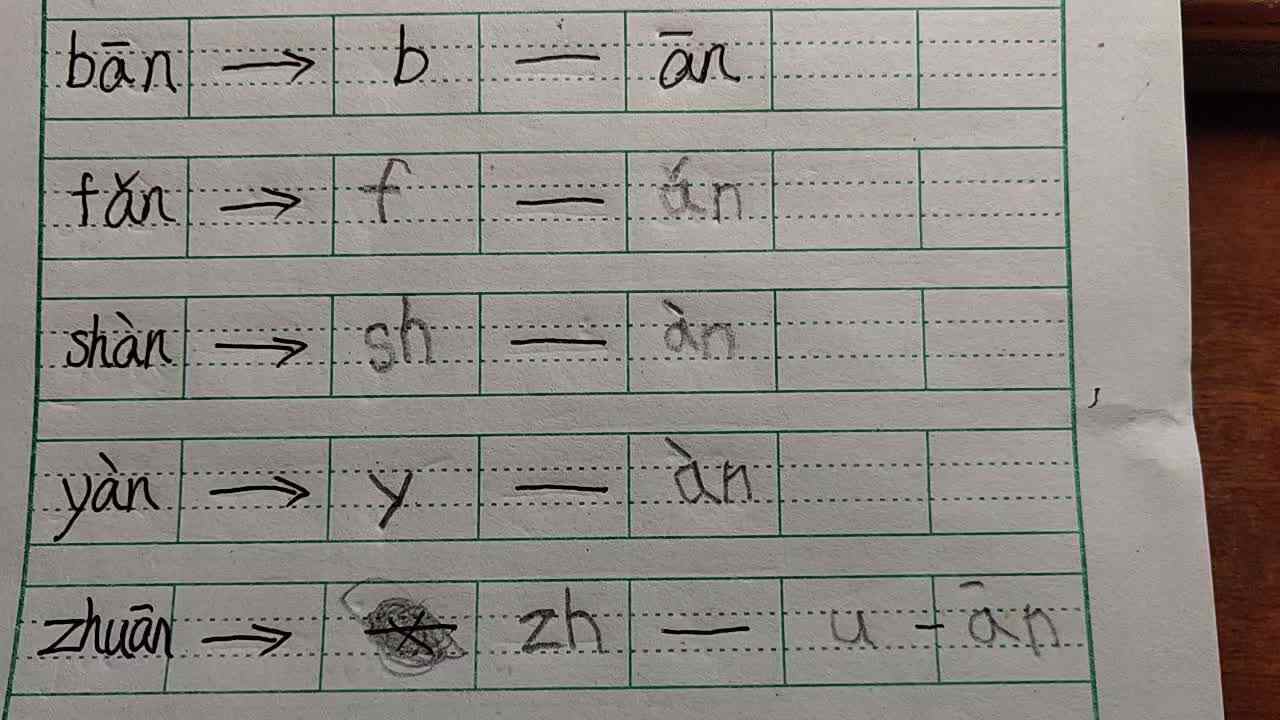 bān → b — ān
fǎn → f — ǎn
shàn → sh — àn
yàn → y — àn
zhuān → zh — u - ān